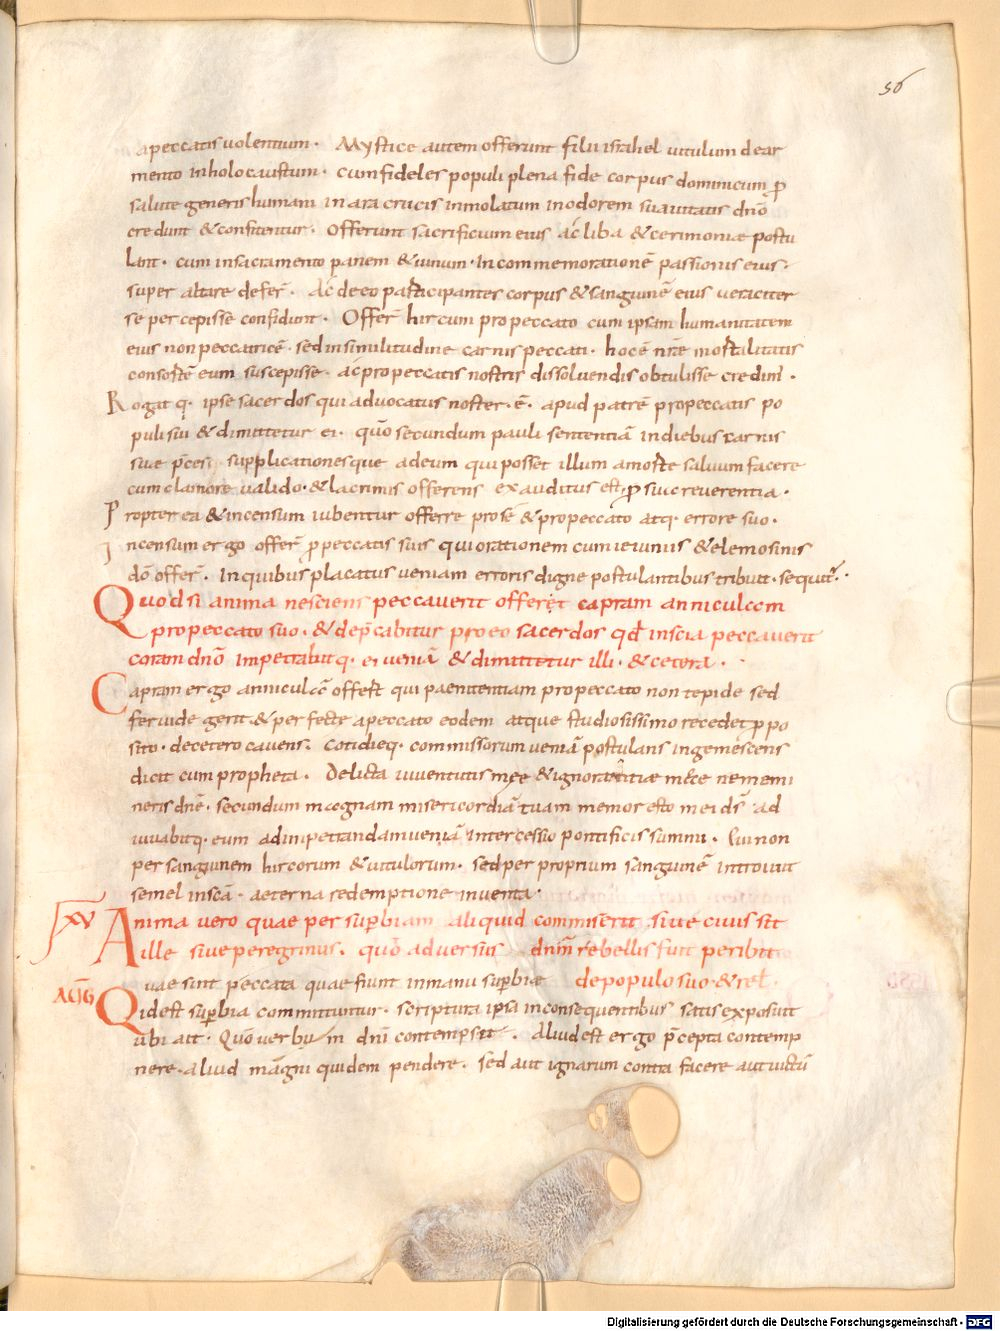 56
a peccatis uolentium. Mystice autem offerunt filii israhel uitulum de ar
mento in holocaustum. cum fideles populi plena fide corpus dominicum p̄
salute generis humani in ara crucis inmolatum in odorem suauitatis dn̄o
credunt & confitentur. Offerunt sacrificium eius ac liba & cerimoniæ postu
lant. cum in sacramento panem & uinum. in commemorationē passionis eius.
super altare defer̄. Ac de eo participantes corpus & sanguinē eius ueraciter
se percepisse confidunt. Offer̄ hircum pro peccato cum ipsam humanitatem
eius non peccatricē. sed in similitudine carnis peccati. hoc ē nr̄e mortalitatis
consortē eum suscepisse. ac pro peccatis nostris dissoluendis obtulisse credunt.
Rogat q. ipse sacerdos qui aduocatus noster. ē. apud patrē pro peccatis po
puli sui & dimittetur ei. quō secundum pauli sententiā in diebus carnis
suæ p̄ces supplicationesque ad eum qui posset illum a morte saluum facere
cum clamore ualido. & lacrimis offerens exauditus est p̄ sua reuerentia.
Propter ea & incensum iubentur offerre pro se & pro peccato atq. errore suo.
incensum ergo offer̄ p̄ peccatis suis qui orationem cum ieiuniis & elemosinis
dō offer̄. In quibus placatus ueniam erroris digne postulantibus tribuit. sequit̄.
Quod si anima nesciens peccauerit offeret capram anniculam
pro peccato suo. & dep̄cabitur pro eo sacerdos qd̄ inscia peccauerit
coram dn̄o impetrabitq. ei ueniā & dimittetur illi. & cetera.
Capram ergo anniculā offert qui paenitentiam pro peccato non tepide sed
feruide gerit & perfecte a peccato eodem atque studiosissimo recedet p̄po
sito. decetero cauens. Cotidieq. commissorum ueniā postulans ingemescens
dicit cum propheta. Delicta iuuentutis mee & ignorantiæ meæ ne memi
neris dn̄e. secundum magnam misericordiā tuam memor esto mei ds̄ ad
iuuabitq. eum ad impetrandam ueniā intercessio pontificis summi. Qui non
per sanguinem hircorum & uitulorum. sed per proprium sanguinē introiuit
semel in scā. aeterna redemptione inuenta.
XV Anima uero quae per superbiam aliquid commiserit siue ciuis sit
ille siue peregrinus. quō aduersus dn̄m rebellis fuit peribit
Quae sint peccata quae fiunt in manu superbiæ de populo suo. & rel.
AUG Quid est superbia committuntur. scriptura ipsa in consequentibus satis exposuit
ubi ait. Quō uerbum dn̄i contempsit. Aliud est ergo p̄cepta contemp
nere. aliud magni quidem pendere. sed aut ignarum contra facere aut uictū
Digitalisierung gefördert durch die Deutsche Forschungsgemeinschaft - DFG